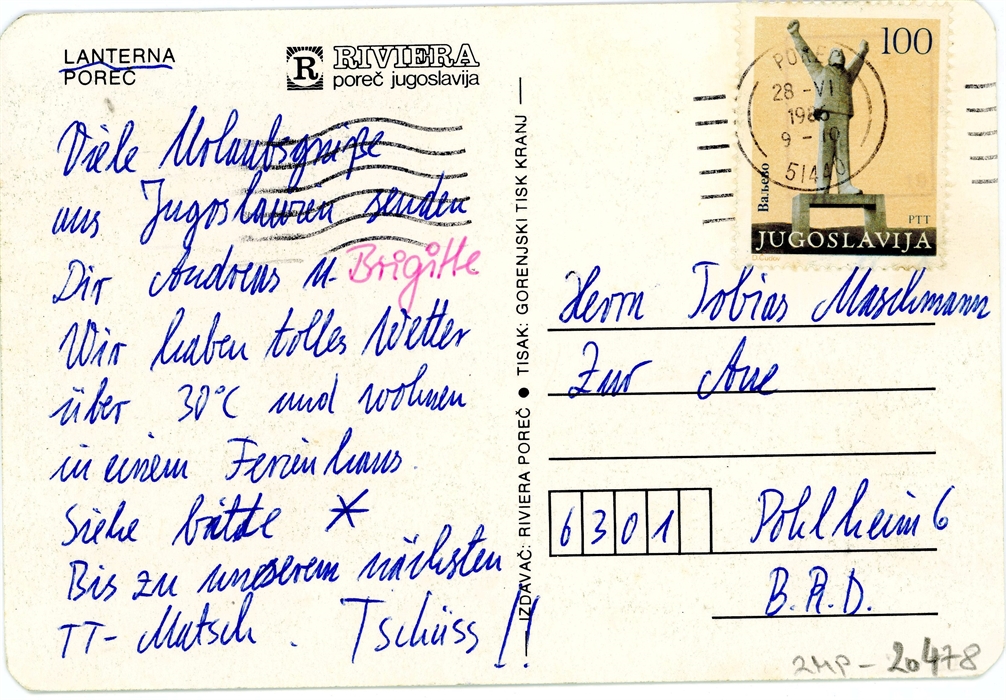 LANTERNA
POREČ
R RIVIERA
poreč jugoslavija
Viele Urlaubsgrüße
aus Jugoslawien senden
Dir Andreas u. Brigitte
Wir haben tolles Wetter
über 30°C und wohnen
in einem Ferienhaus.
Siehe bitte *
Bis zu unserem nächsten
TT-Matsch. Tschüss!!
IZDAVAČ: RIVIERA POREČ ● TISAK: GORENJSKI TISK KRANJ
100
Ваљево
PTT
JUGOSLAVIJA
POREČ
28-VI
1986
9-10
51440
Herrn Tobias Maschmann
Zur Aue
6301 Pohlheim 6
B.R.D.
2MP-20478